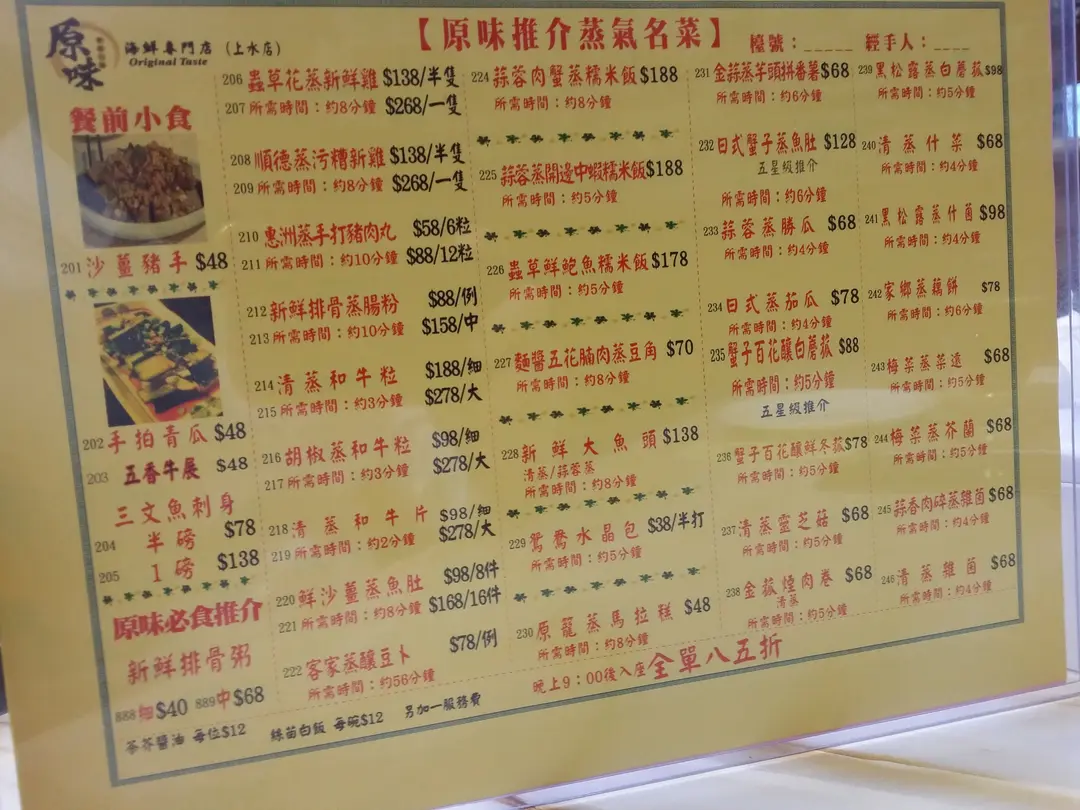 原味
海鮮專門店(上水店)
Original Taste
【原味推介蒸氣名菜】
檯號：_____ 經手人：____
餐前小食
201 沙薑豬手 $48
202 手拍青瓜 $48
203 五香牛展 $48
三文魚刺身
204 半磅 $78
205 1磅 $138
原味必食推介
新鮮排骨粥
888細$40 889中$68
206 蟲草花蒸新鮮雞 $138/半隻
207 所需時間：約8分鐘 $268/一隻
208 順德蒸污糟新雞 $138/半隻
209 所需時間：約8分鐘 $268/一隻
210 惠洲蒸手打豬肉丸 $58/6粒
211 所需時間：約10分鐘 $88/12粒
212 新鮮排骨蒸腸粉 $88/例
213 所需時間：約10分鐘 $158/中
214 清蒸和牛粒 $188/細
215 所需時間：約3分鐘 $278/大
216 胡椒蒸和牛粒 $98/細
217 所需時間：約3分鐘 $278/大
218 清蒸和牛片 $98/細
219 所需時間：約2分鐘 $278/大
220 鮮沙薑蒸魚肚 $98/8件
221 所需時間：約8分鐘 $168/16件
222 客家蒸釀豆卜 $78/例
所需時間：約56分鐘
224 蒜蓉肉蟹蒸糯米飯 $188
所需時間：約8分鐘
225 蒜蓉蒸開邊中蝦糯米飯 $188
所需時間：約5分鐘
226 蟲草鮮鮑魚糯米飯 $178
所需時間：約5分鐘
227 麵醬五花腩肉蒸豆角 $70
所需時間：約8分鐘
228 新鮮大魚頭 $138
清蒸/蒜蓉蒸
所需時間：約8分鐘
229 鴛鴦水晶包 $38/半打
所需時間：約5分鐘
230 原籠蒸馬拉糕 $48
所需時間：約8分鐘
231 金蒜蒸芋頭拼番薯 $68
所需時間：約6分鐘
232 日式蟹子蒸魚肚 $128
五星級推介
所需時間：約6分鐘
233 蒜蓉蒸勝瓜 $68
所需時間：約4分鐘
234 日式蒸茄瓜 $78
所需時間：約4分鐘
235 蟹子百花釀白蘑菇 $88
所需時間：約5分鐘
五星級推介
236 蟹子百花釀鮮冬菇 $78
所需時間：約5分鐘
237 清蒸靈芝菇 $68
所需時間：約5分鐘
238 金菇煙肉卷 $68
清蒸
所需時間：約5分鐘
239 黑松露蒸白蘑菇 $98
所需時間：約5分鐘
240 清蒸什菜 $68
所需時間：約4分鐘
241 黑松露蒸什菌 $98
所需時間：約4分鐘
242 家鄉蒸藕餅 $78
所需時間：約6分鐘
243 梅菜蒸菜遠 $68
所需時間：約5分鐘
244 梅菜蒸芥蘭 $68
所需時間：約5分鐘
245 蒜香肉碎蒸雜菌 $68
所需時間：約4分鐘
246 清蒸雜菌 $68
所需時間：約4分鐘
晚上9：00後入座全單八五折
茶芥醬油 每位$12 絲苗白飯 每碗$12 另加一服務費